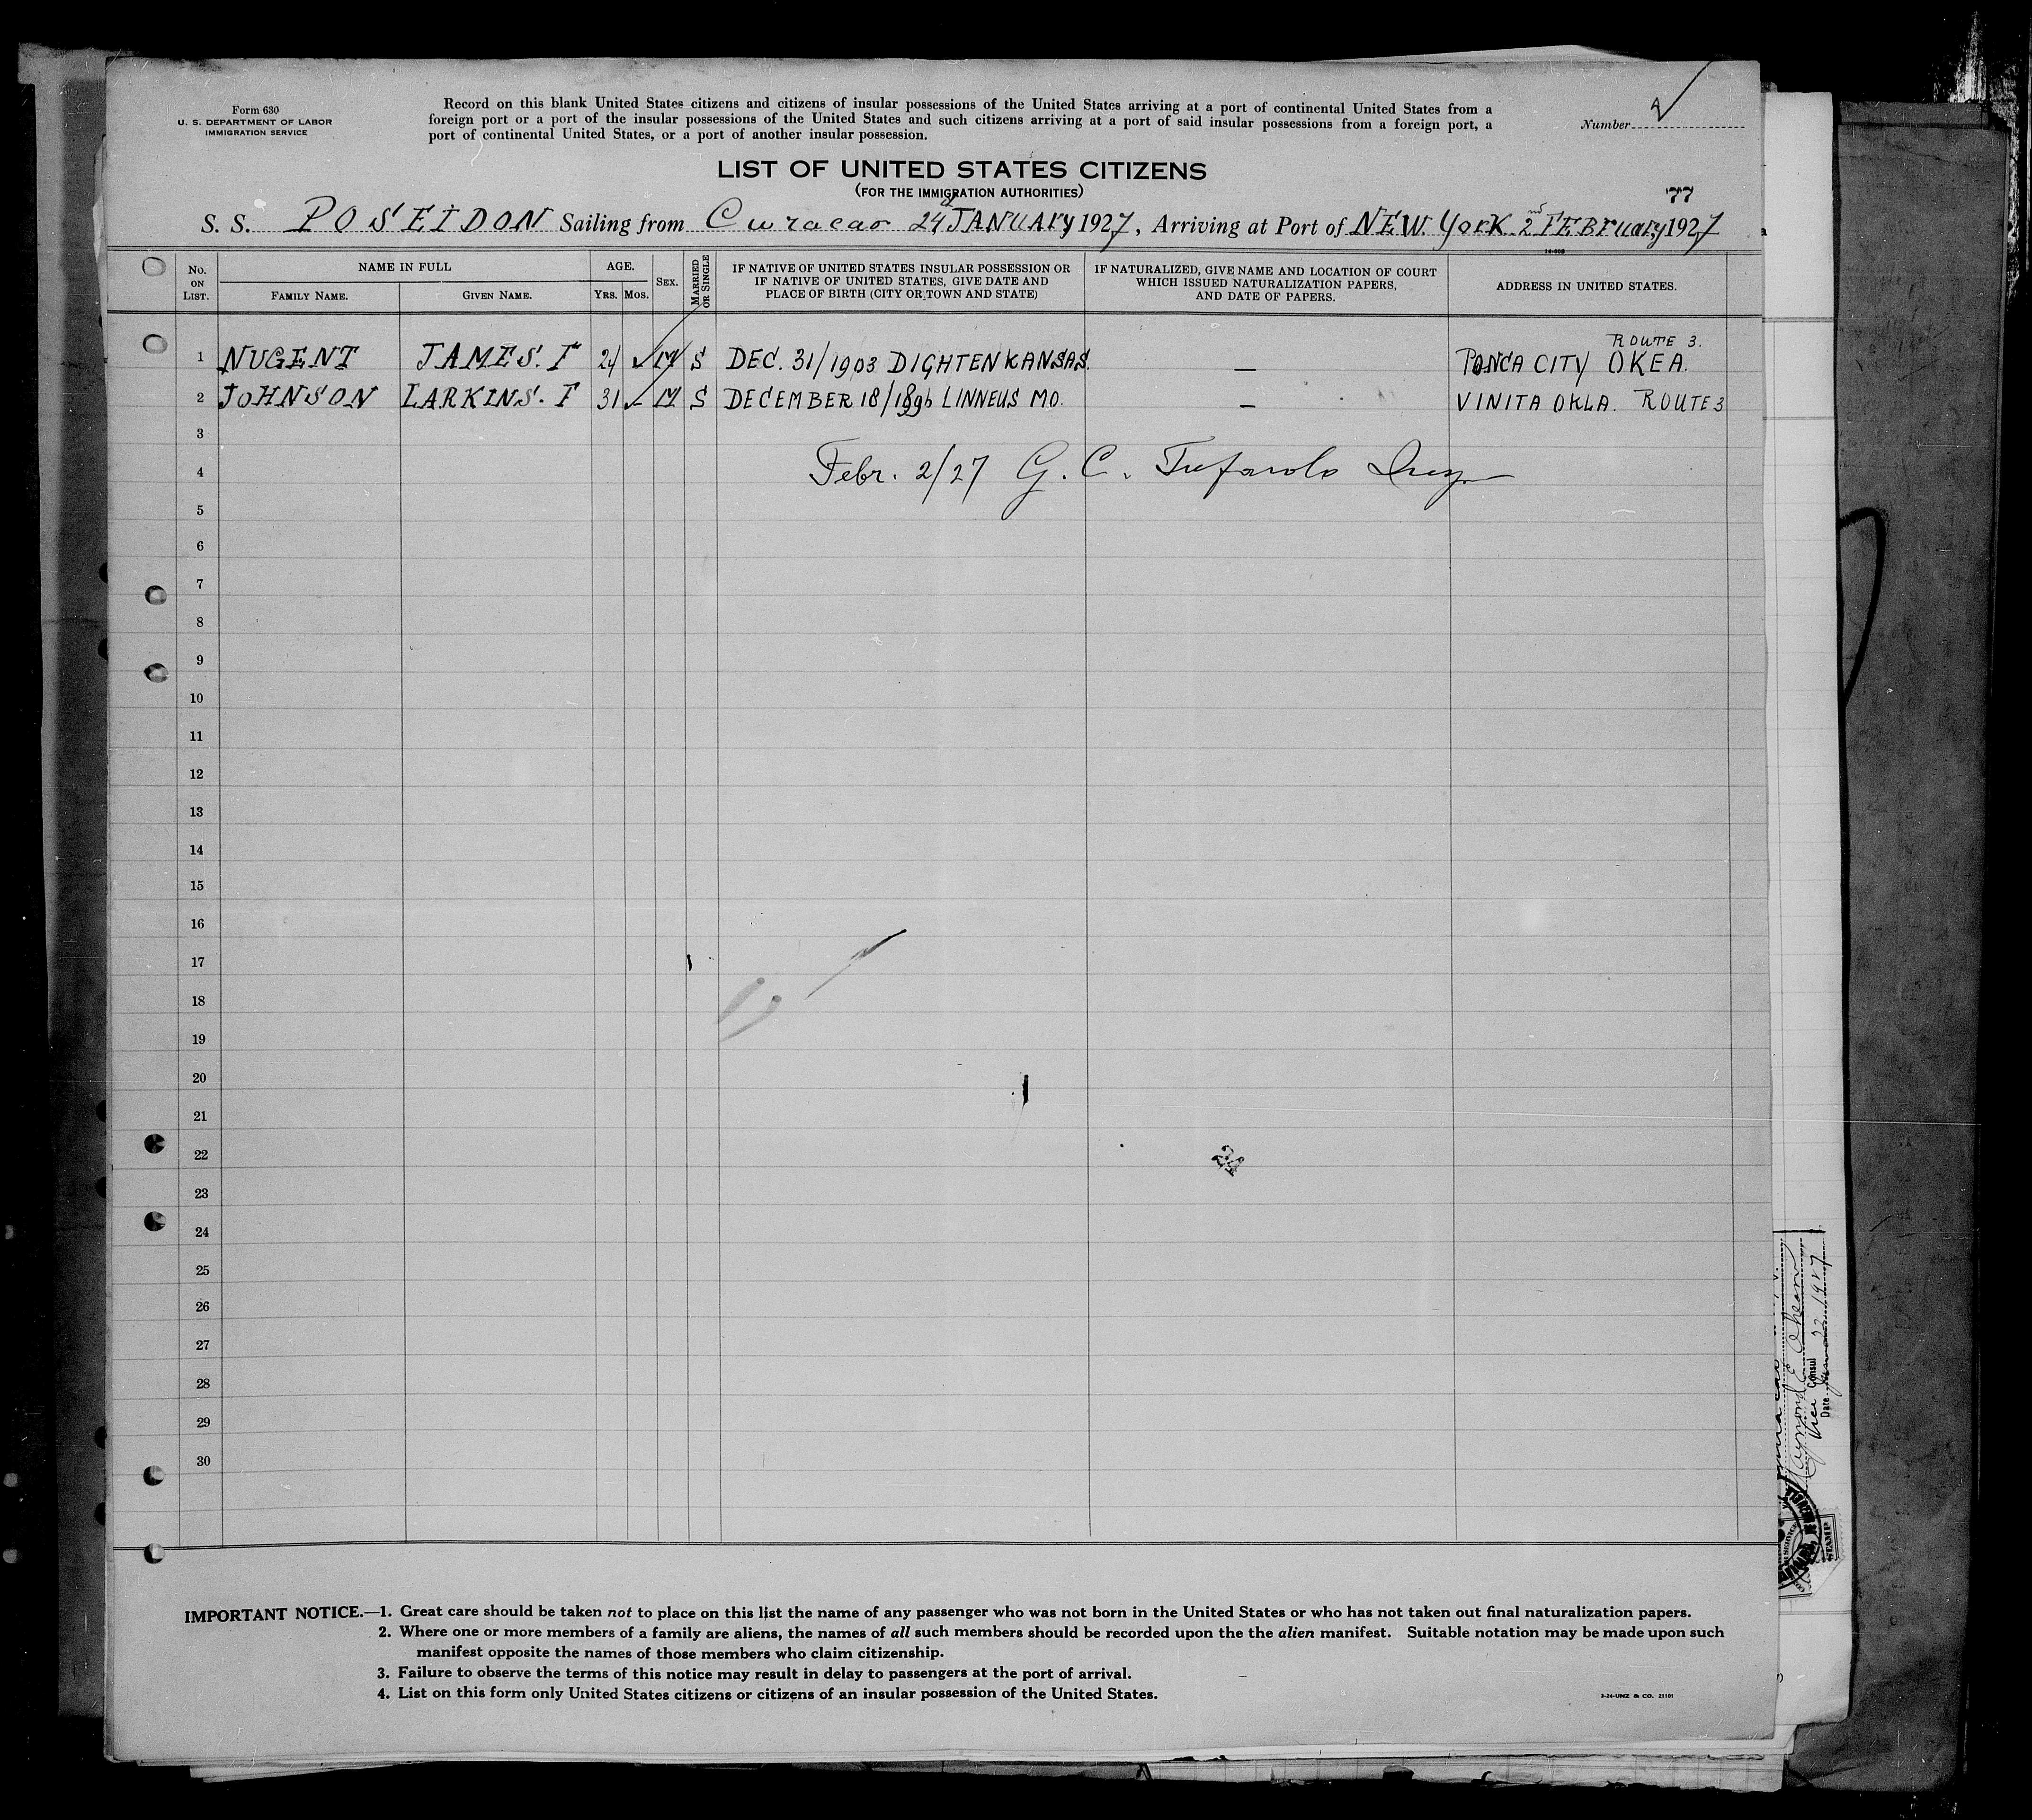 Form 630
U. S. DEPARTMENT OF LABOR
IMMIGRATION SERVICE
Record on this blank United States citizens and citizens of insular possessions of the United States arriving at a port of continental United States from a
foreign port or a port of the insular possessions of the United States and such citizens arriving at a port of said insular possessions from a foreign port, a
port of continental United States, or a port of another insular possession.
Number
LIST OF UNITED STATES CITIZENS
(FOR THE IMMIGRATION AUTHORITIES)
77
S. S. POSEIDON Sailing from Curacao 24 JANUARY 1927, Arriving at Port of NEW YORK 2nd FEBRUARY 1927
No. ON LIST. NAME IN FULL AGE. SEX. MARRIED OR SINGLE IF NATIVE OF UNITED STATES INSULAR POSSESSION OR IF NATIVE OF UNITED STATES, GIVE DATE AND PLACE OF BIRTH (CITY OR TOWN AND STATE) IF NATURALIZED, GIVE NAME AND LOCATION OF COURT WHICH ISSUED NATURALIZATION PAPERS, AND DATE OF PAPERS. ADDRESS IN UNITED STATES.
FAMILY NAME. GIVEN NAME. YRS. MOS.
ROUTE 3.
1 NUGENT JAMES. F 24 ✓ M S DEC. 31/1903 DIGHTEN KANSAS. — PONCA CITY OKEA.
2 JOHNSON LARKINS. F 31 ✓ M S DECEMBER 18/1896 LINNEUS MO. — VINITA OKLA. ROUTE 3
3
4 Febr. 2/27 G. C.
5
6
7
8
9
10
11
12
13
14
15
16
17
18
19
20
21
22
23
24
25
26
27
28
29
30
IMPORTANT NOTICE.—1. Great care should be taken not to place on this list the name of any passenger who was not born in the United States or who has not taken out final naturalization papers.
2. Where one or more members of a family are aliens, the names of all such members should be recorded upon the the alien manifest. Suitable notation may be made upon such
manifest opposite the names of those members who claim citizenship.
3. Failure to observe the terms of this notice may result in delay to passengers at the port of arrival.
4. List on this form only United States citizens or citizens of an insular possession of the United States.
2-24-UNZ & CO. 21101
Vice Consul
Date 22 1927
STAMP